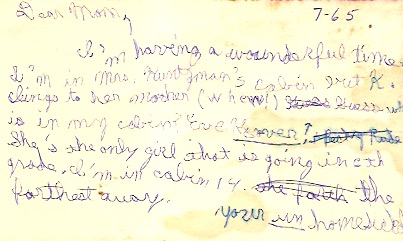 Dear Mom,
7-65.
I'm having a wounderful time
I'm in Mrs. Huntzman's cabin but K.
clings to her mother (whew!) Guess who
is in my cabin? Eve Hoover!
She's the only girl that is going in 6th
grade. I'm in cabin 14. the farth the
farthest away.
your un homesick